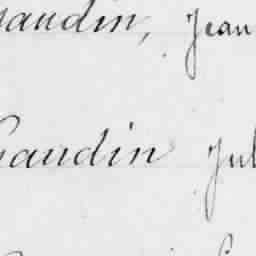 Gaudin, Jean
Gaudin Jul